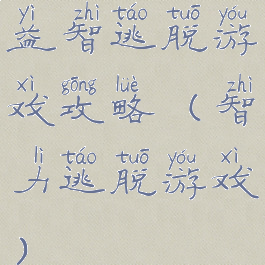 yì zhì táo tuō yóu
益智逃脱游
xì gōng lüè zhì
戏攻略(智
lì táo tuō yóu xì
力逃脱游戏
)